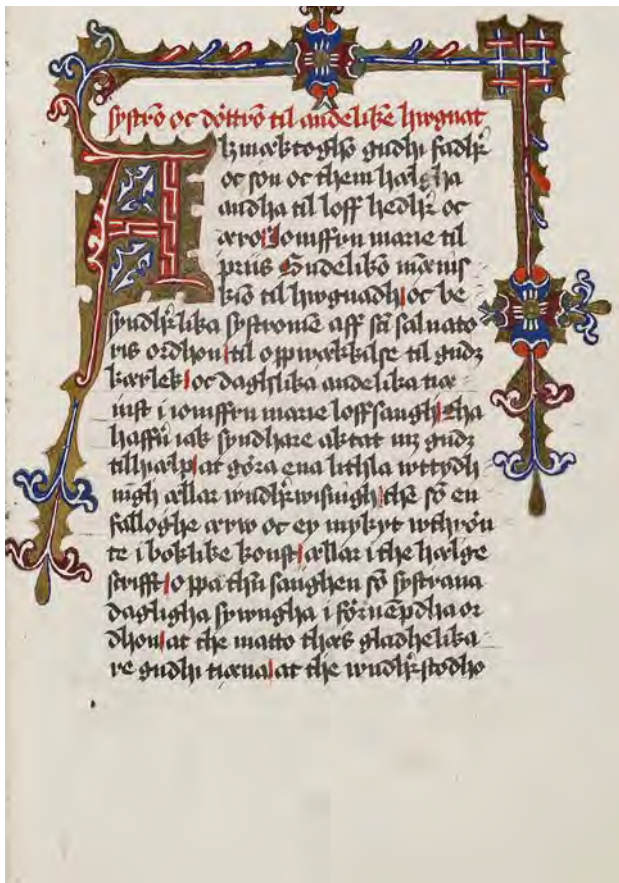 systrō oc döttrō til andelikē hwgnat
Alzmæktoghō gudhi fadh̄r
oc son oc them hælgha
andha til loff hedh̄r oc
æro Iomffrun marie til
priis Gudelikō mænnis
kiō til hwgnadh oc be
syndh̄rlika systromē aff sc̄i saluato
ris ordhon til oppwækkilse til gudz
kærlek oc daghlika andelika tiæ
inst i iomffru marie loffsangh Tha
haffu̅ iak syndhare aktat mz gudz
tillhælp at göra ena litsla wttydh
nīgh ællar wndh̄rwisnigh thē sō en
falloghe ærw oc ey mykyt wthrön
te i boklike konst ællar i the hælge
scrifft oppa thn̄ sanghen sō systrana
daglighа sywngha i förnēpdha or
dhon at the matto thæs gladhelika
re gudhi tiæna at the wndh̄rstodho